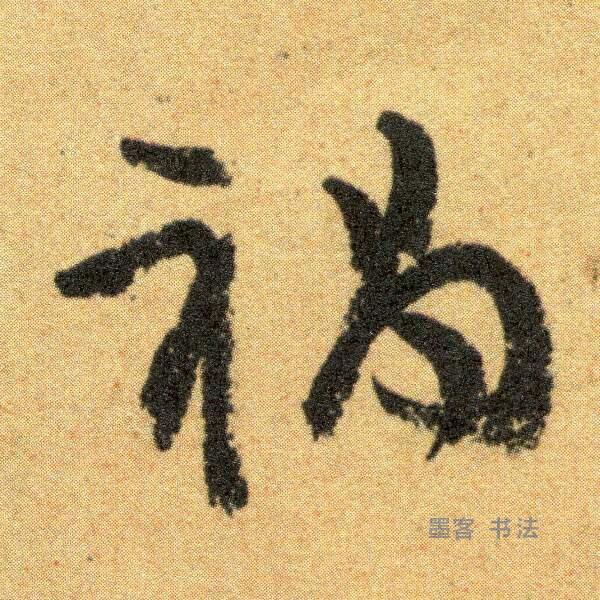 禍
墨客 书法